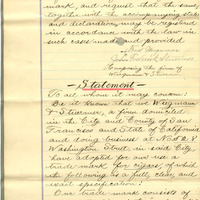 mark, and request that the same,
together with the accompanying state-
and declaration, may be registered
in accordance with the law in
such case made and provided
Composing the firm of
Wiegmann &
Statement
To all whom it may concern:
Be it known that we Wiegmann
& a firm domiciled
in the City and County of San
Francisco and State of California
and doing business at No
Washington Street in said City
have adopted for our use a
trade mark for cigars of which
the following is a full, clear, and
exact specification:
Our trade mark consists of